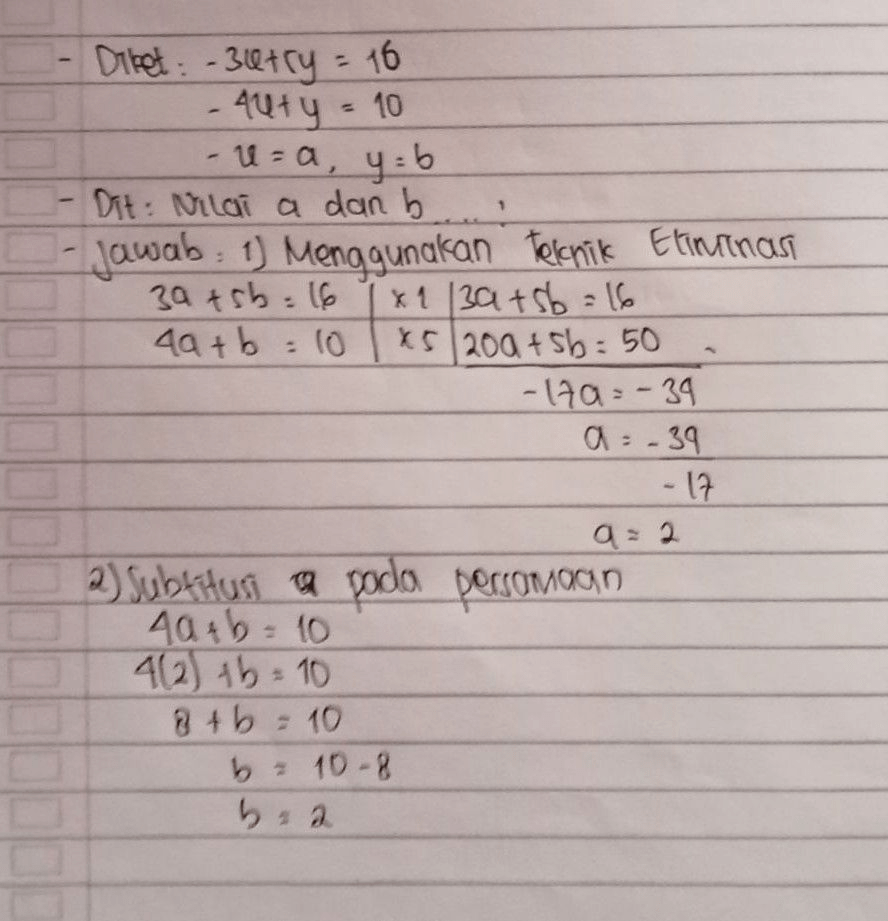 - Diket : - 3x+5y = 16
- 4x+y = 10
- x = a, y = b
- Dit : Nilai a dan b ..... ;
- Jawab : 1) Menggunakan Teknik Eliminasi
3a + 5b = 16 | x 1 | 3a + 5b = 16
4a + b = 10 | x 5 | 20a + 5b = 50 -
-17a = - 34
a = - 34
- 17
a = 2
2) Subtitusi a pada persamaan
4a + b = 10
4(2) + b = 10
8 + b = 10
b = 10 - 8
b = 2